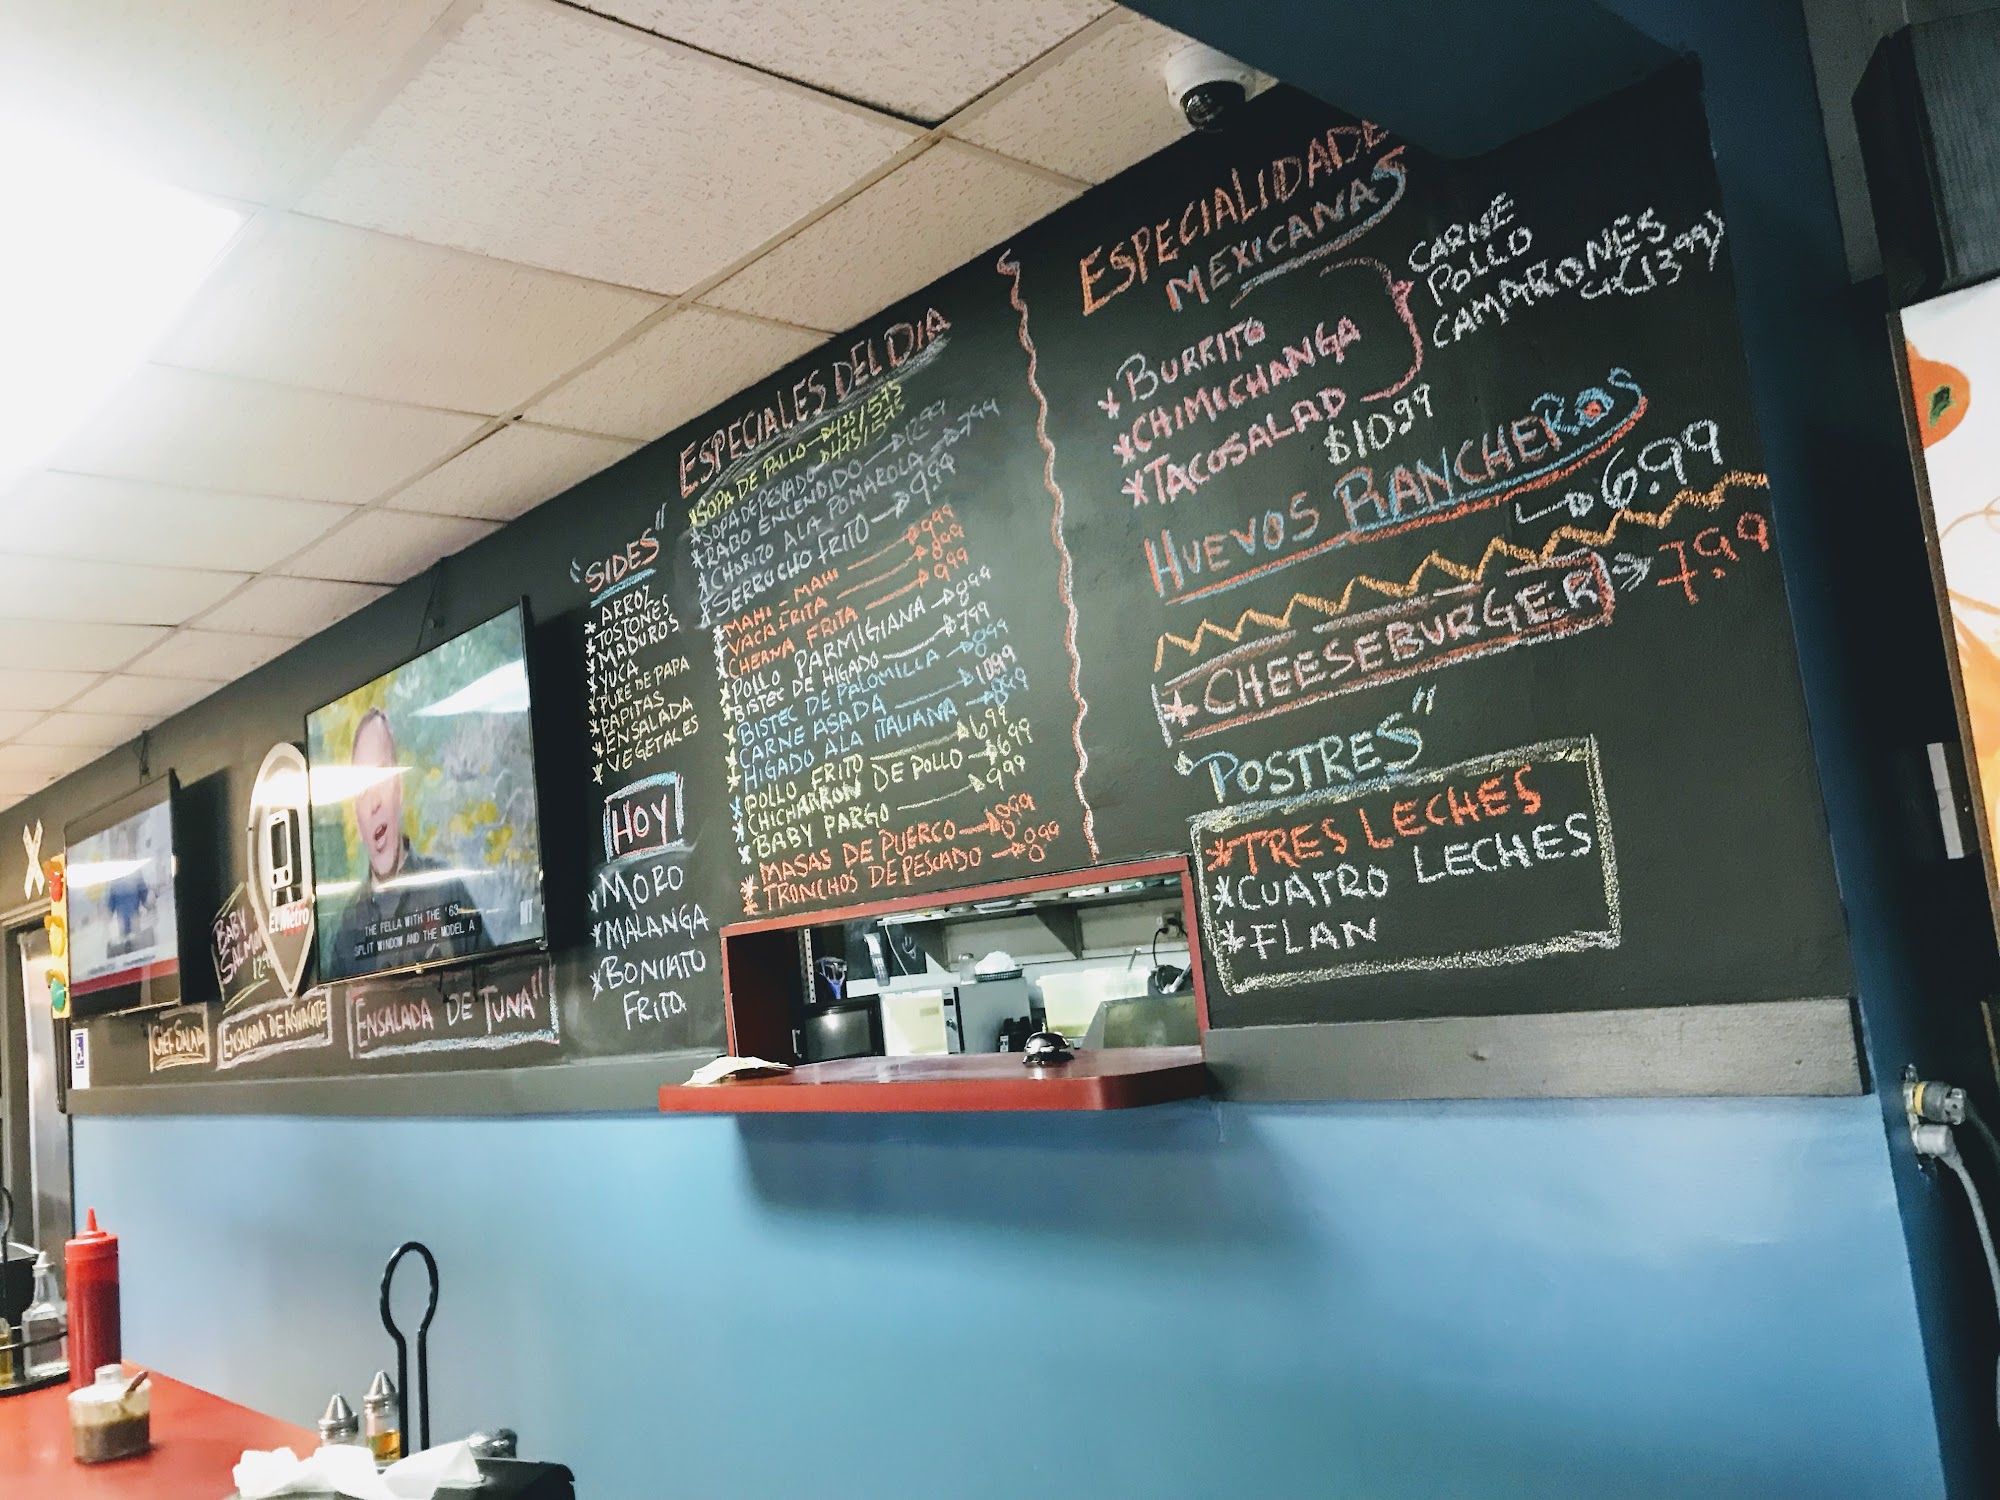 "SIDES"
* ARROZ
* TOSTONES
* MADUROS
* YUCA
* PURE DE PAPA
* PAPITAS
* ENSALADA
* VEGETALES
HOY
* MORO
* MALANGA
* BONIATO
FRITO
ESPECIALES DEL DIA
* SOPA DE POLLO 4.75/5.75
* SOPA DE PESCADO 4.75/5.75
* RABO ENCENDIDO 12.99
* CHORIZO A LA POMAROLA 7.99
* SERRUCHO FRITO 9.99
* MAHI-MAHI 9.99
* VACA FRITA 8.99
* CHERNA FRITA 9.99
* POLLO PARMIGIANA 8.99
* BISTEC DE HIGADO 7.99
* BISTEC DE PALOMILLA 8.99
* CARNE ASADA 10.99
* HIGADO A LA ITALIANA 8.99
* POLLO FRITO 6.99
* CHICHARRON DE POLLO 6.99
* BABY PARGO 9.99
* MASAS DE PUERCO 8.99
* TRONCHOS DE PESCADO 8.99
ESPECIALIDADES
MEXICANAS
* BURRITO
* CHIMICHANGA
* TACOSALAD
$10.99
CARNE
POLLO
CAMARONES
(13.99)
HUEVOS RANCHEROS
6.99
* CHEESEBURGER 7.99
"POSTRES"
* TRES LECHES
* CUATRO LECHES
* FLAN
BABY
SALMON
12.99
El Metro
THE FELLA WITH THE '63
SPLIT WINDOW AND THE MODEL A
CHEF SALAD
ENSALADA DE AGUACATE
ENSALADA DE TUNA"